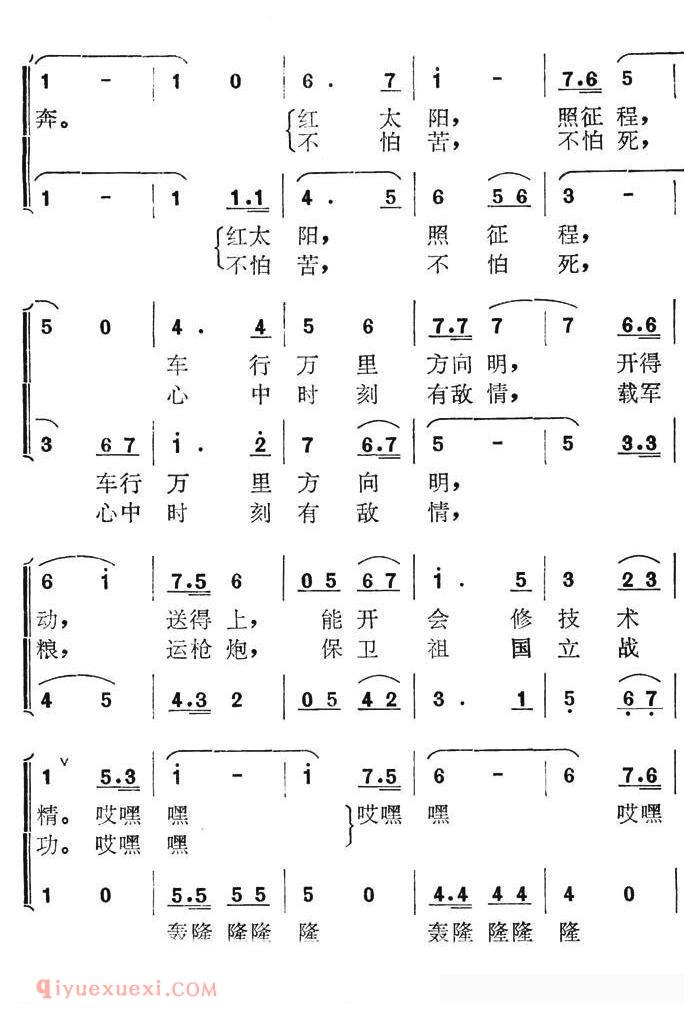 1 - | 1 0 | 6. 7 | i - | 7.6 5 |
奔。 红 太 阳， 照征 程，
不 怕 苦， 不怕 死，
1 - | 1 1.1 | 4. 5 | 6 5 6 | 3 - |
红太 阳， 照 征 程，
不怕 苦， 不 怕 死，
5 0 | 4. 4 | 5 6 | 7.7 7 | 7 6.6 |
车 行 万 里 方向 明， 开得
心 中 时 刻 有敌 情， 载军
3 6 7 | i. 2 | 7 6.7 | 5 - | 5 3.3 |
车行 万 里 方 向 明，
心中 时 刻 有 敌 情，
6 i | 7.5 6 | 0 5 6 7 | i. 5 | 3 2 3 |
动， 送得 上， 能 开 会 修 技 术
粮， 运枪 炮， 保 卫 祖 国 立 战
4 5 | 4.3 2 | 0 5 4 2 | 3. 1 | 5 6 7 |
1 v 5.3 | i - | i 7.5 | 6 - | 6 7.6 |
精。 哎嘿 嘿 哎嘿 嘿 哎嘿
功。 哎嘿 嘿
1 0 | 5.5 5 5 | 5 0 | 4.4 4 4 | 4 0 |
轰隆 隆隆 隆 轰隆 隆隆 隆
qiyuexuexi.com